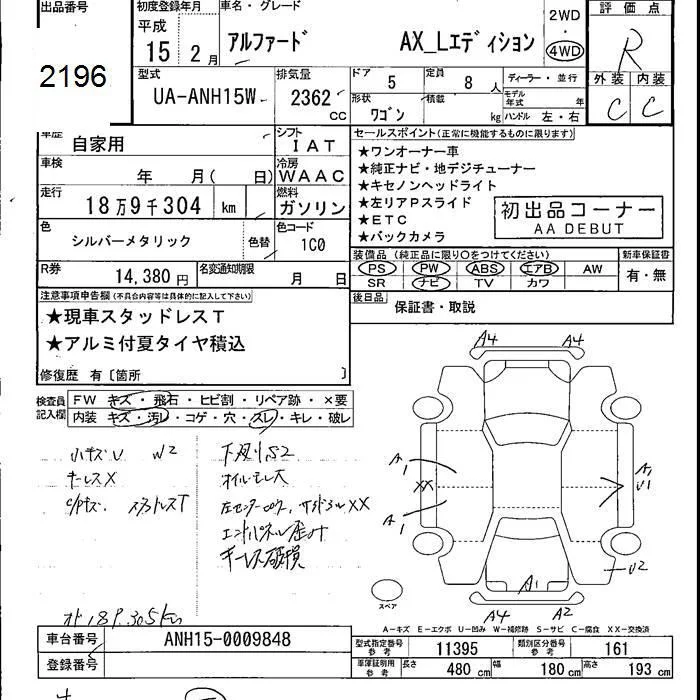 出品番号
2196
初度登録年月
平成
15年 2月
車名・グレード
アルファード AX_Lエディション
2WD
・
4WD
評価点
R
外装 内装
C C
型式
UA-ANH15W
排気量
2362 CC
ドア 5
定員 8 人
形状 ワゴン
積載 kg
ディーラー・並行
モデル年式 年
ハンドル 左・右
車歴 自家用
シフト IAT
車検 年 月( 日)
冷房 WAAC
走行 18万9千304 km
燃料 ガソリン
色 シルバーメタリック
色替
色コード 1C0
R券 14,380円
名変通知期限 月 日
セールスポイント(正常に機能するものに限ります)
★ワンオーナー車
★純正ナビ・地デジチューナー
★キセノンヘッドライト
★左リアPスライド
★ETC
★バックカメラ
初出品コーナー
AA DEBUT
装備品(純正品に限り○をつけてください)
新車保証書
PS PW ABS エアB AW
SR ナビ TV カワ
有・無
後日品 保証書・取説
注意事項申告欄(不具合内容等は具体的に記入して下さい)
★現車スタッドレスT
★アルミ付夏タイヤ積込
修復歴 有〔箇所 〕
検査員記入欄
FW キズ・飛石・ヒビ割・リペア跡・×要
内装 キズ・汚レ・コゲ・穴・スレ・キレ・破レ
小キズU W2
キーレスX
スタットレスT
下廻りS2
オイルモレ大
エンドパネル歪み
キーレス破損
オド189,305km
A4 A4
A1
XX
A1
A1
U1
U2
A1
A4 A2
スペア
A-キズ E-エクボ U-凹み W-補修跡 S-サビ C-腐食 XX-交換済
車台番号 ANH15-0009848
登録番号
型式指定番号 参考 11395
類別区分番号 参考 161
車庫証明用 参考 長さ 480 cm 幅 180 cm 高さ 193 cm